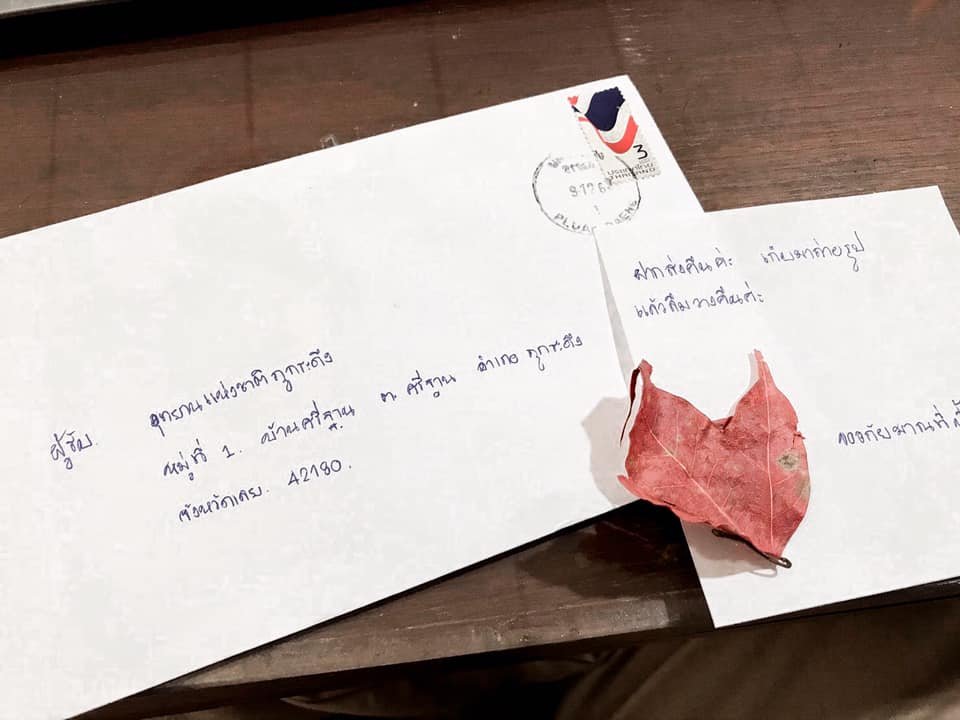 3
ประเทศไทย
THAILAND
ผู้รับ. อุทยานแห่งชาติภูกระดึง
หมู่ที่ 1. บ้านศรีฐาน ต. ศรีฐาน อำเภอ ภูกระดึง
จังหวัดเลย. 42180.
ฝากส่งคืนค่ะ เก็บมาถ่ายรูป
แล้วลืมวางคืนค่ะ
ขออภัยมาณที่นี้